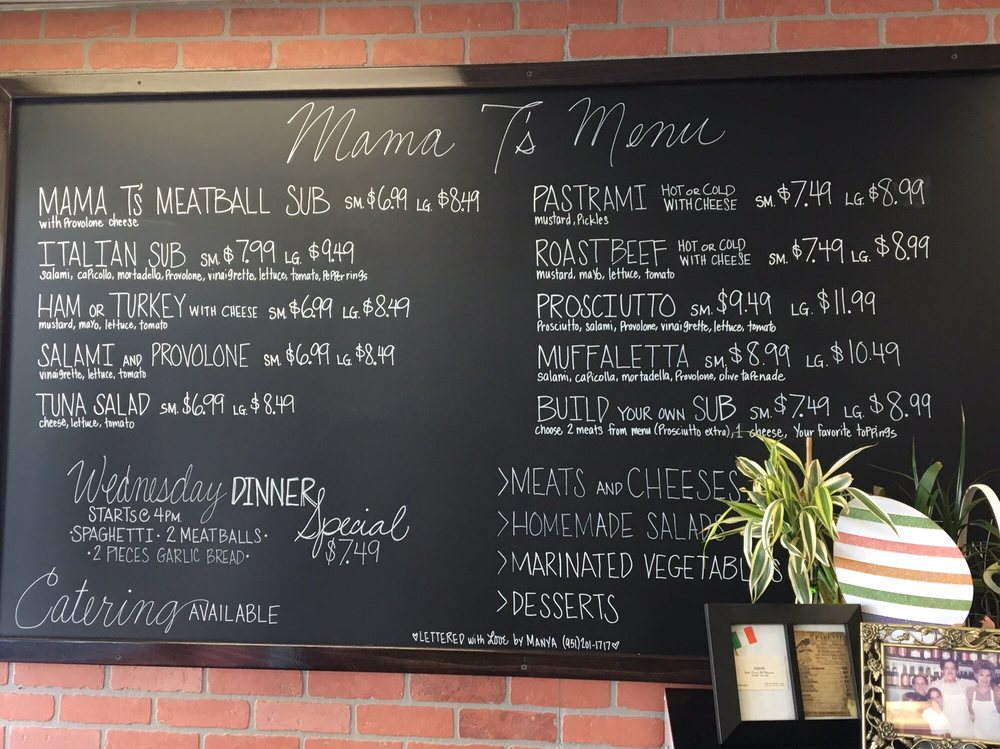 Mama T's Menu
MAMA T's MEATBALL SUB SM. $6.99 LG. $8.49
with Provolone cheese
ITALIAN SUB SM. $7.99 LG. $9.49
salami, capicolla, mortadella, Provolone, vinaigrette, lettuce, tomato, PePPer rings
HAM OR TURKEY WITH CHEESE SM. $6.99 LG. $8.49
mustard, mayo, lettuce, tomato
SALAMI AND PROVOLONE SM. $6.99 LG. $8.49
vinaigrette, lettuce, tomato
TUNA SALAD SM. $6.99 LG. $8.49
cheese, lettuce, tomato
PASTRAMI HOT OR COLD WITH CHEESE SM. $7.49 LG. $8.99
mustard, Pickles
ROAST BEEF HOT OR COLD WITH CHEESE SM. $7.49 LG. $8.99
mustard, mayo, lettuce, tomato
PROSCIUTTO SM. $9.49 LG. $11.99
Prosciutto, salami, Provolone, vinaigrette, lettuce, tomato
MUFFALETTA SM. $8.99 LG. $10.49
salami, capicolla, mortadella, Provolone, olive tapenade
BUILD YOUR OWN SUB SM. $7.49 LG. $8.99
choose, 2 meats from menu (Prosciutto extra), 1 cheese, Your favorite toppings
Wednesday DINNER
Special
STARTS @ 4PM
$7.49
·SPAGHETTI· 2 MEATBALLS·
·2 PIECES GARLIC BREAD·
>MEATS AND CHEESES
>HOMEMADE SALADS
>MARINATED VEGETABLES
>DESSERTS
Catering AVAILABLE
♡LETTERED with Love by MANYA (951)201-1717♡